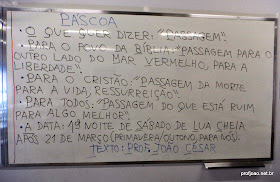 PÁSCOA
• O QUE QUER DIZER: "PASSAGEM".
• PARA O POVO DA BÍBLIA: "PASSAGEM PARA O
OUTRO LADO DO MAR VERMELHO, PARA A
LIBERDADE".
• PARA O CRISTÃO: "PASSAGEM DA MORTE
PARA A VIDA, RESSURREIÇÃO".
• PARA TODOS: "PASSAGEM DO QUE ESTÁ RUIM
PARA ALGO MELHOR".
• A DATA: 1ª NOITE DE SÁBADO DE LUA CHEIA
APÓS 21 DE MARÇO (PRIMAVERA/OUTONO, PARA NÓS).
TEXTO: PROF. JOÃO CESAR
profjoao.net.br